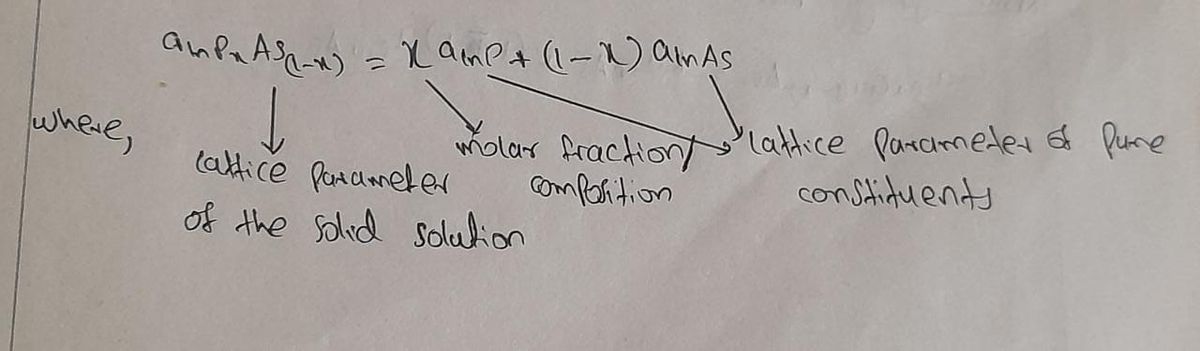 aInPxAS(1-x) = x aInP + (1-x) aInAs
where,
lattice Parameter of the solid solution
molar fraction/ composition
lattice Parameter of Pure constituents